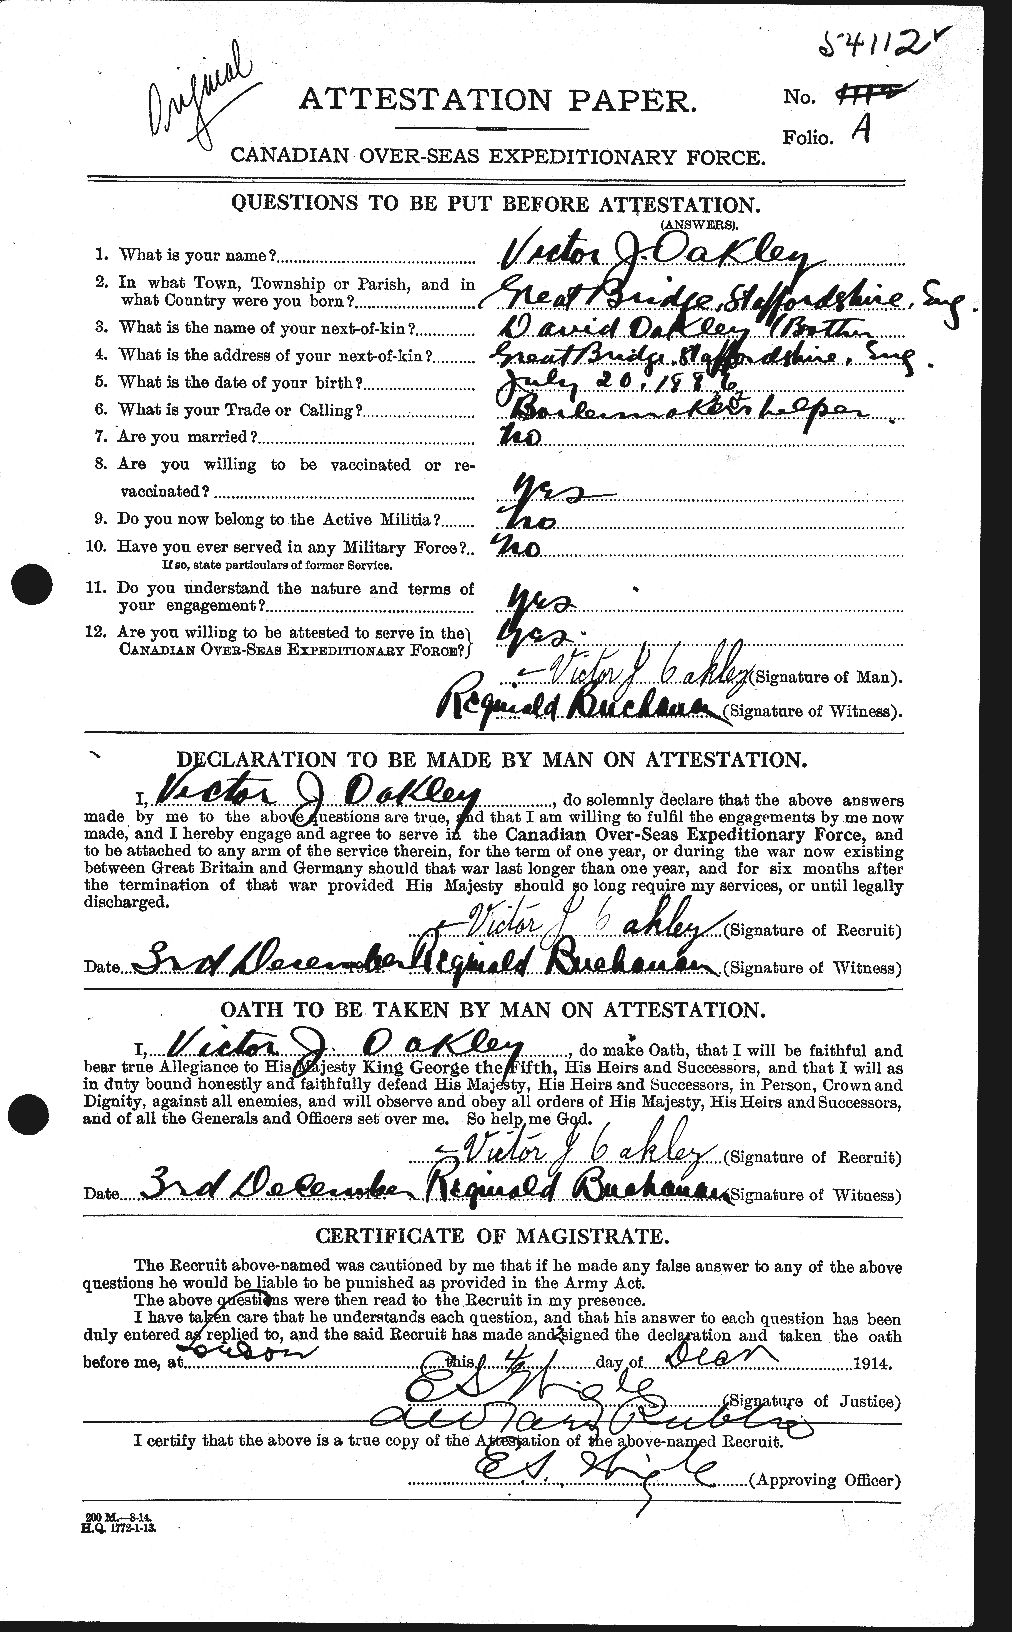 54112
Original
ATTESTATION PAPER.
No.
Folio. A
CANADIAN OVER-SEAS EXPEDITIONARY FORCE.
QUESTIONS TO BE PUT BEFORE ATTESTATION.
(ANSWERS).
1. What is your name? Victor J. Oakley
2. In what Town, Township or Parish, and in
what Country were you born? Great Bridge, Staffordshire, Eng.
3. What is the name of your next-of-kin? David Oakley (Brother
4. What is the address of your next-of-kin? Great Bridge, Staffordshire, Eng.
5. What is the date of your birth? July 20, 1886
6. What is your Trade or Calling? Boilermakers helper
7. Are you married? No
8. Are you willing to be vaccinated or re-
vaccinated? Yes
9. Do you now belong to the Active Militia? No
10. Have you ever served in any Military Force? No
If so, state particulars of former Service.
11. Do you understand the nature and terms of
your engagement? Yes
12. Are you willing to be attested to serve in the
CANADIAN OVER-SEAS EXPEDITIONARY FORCE? Yes.
Victor J Oakley (Signature of Man).
Reginald Buchanan (Signature of Witness).
DECLARATION TO BE MADE BY MAN ON ATTESTATION.
I, Victor J Oakley, do solemnly declare that the above answers
made by me to the above questions are true, and that I am willing to fulfil the engagements by me now
made, and I hereby engage and agree to serve in the Canadian Over-Seas Expeditionary Force, and
to be attached to any arm of the service therein, for the term of one year, or during the war now existing
between Great Britain and Germany should that war last longer than one year, and for six months after
the termination of that war provided His Majesty should so long require my services, or until legally
discharged.
Victor J Oakley (Signature of Recruit)
Date 3rd December Reginald Buchanan (Signature of Witness)
OATH TO BE TAKEN BY MAN ON ATTESTATION.
I, Victor J. Oakley, do make Oath, that I will be faithful and
bear true Allegiance to His Majesty King George the Fifth, His Heirs and Successors, and that I will as
in duty bound honestly and faithfully defend His Majesty, His Heirs and Successors, in Person, Crown and
Dignity, against all enemies, and will observe and obey all orders of His Majesty, His Heirs and Successors,
and of all the Generals and Officers set over me. So help me God.
Victor J Oakley (Signature of Recruit)
Date 3rd December Reginald Buchanan (Signature of Witness)
CERTIFICATE OF MAGISTRATE.
The Recruit above-named was cautioned by me that if he made any false answer to any of the above
questions he would be liable to be punished as provided in the Army Act.
The above questions were then read to the Recruit in my presence.
I have taken care that he understands each question, and that his answer to each question has been
duly entered as replied to, and the said Recruit has made and signed the declaration and taken the oath
before me, at this 4 day of 1914.
(Signature of Justice)
Notary Public
I certify that the above is a true copy of the Attestation of the above-named Recruit.
(Approving Officer)
200 M.—8-14.
H.Q. 1772-1-13.